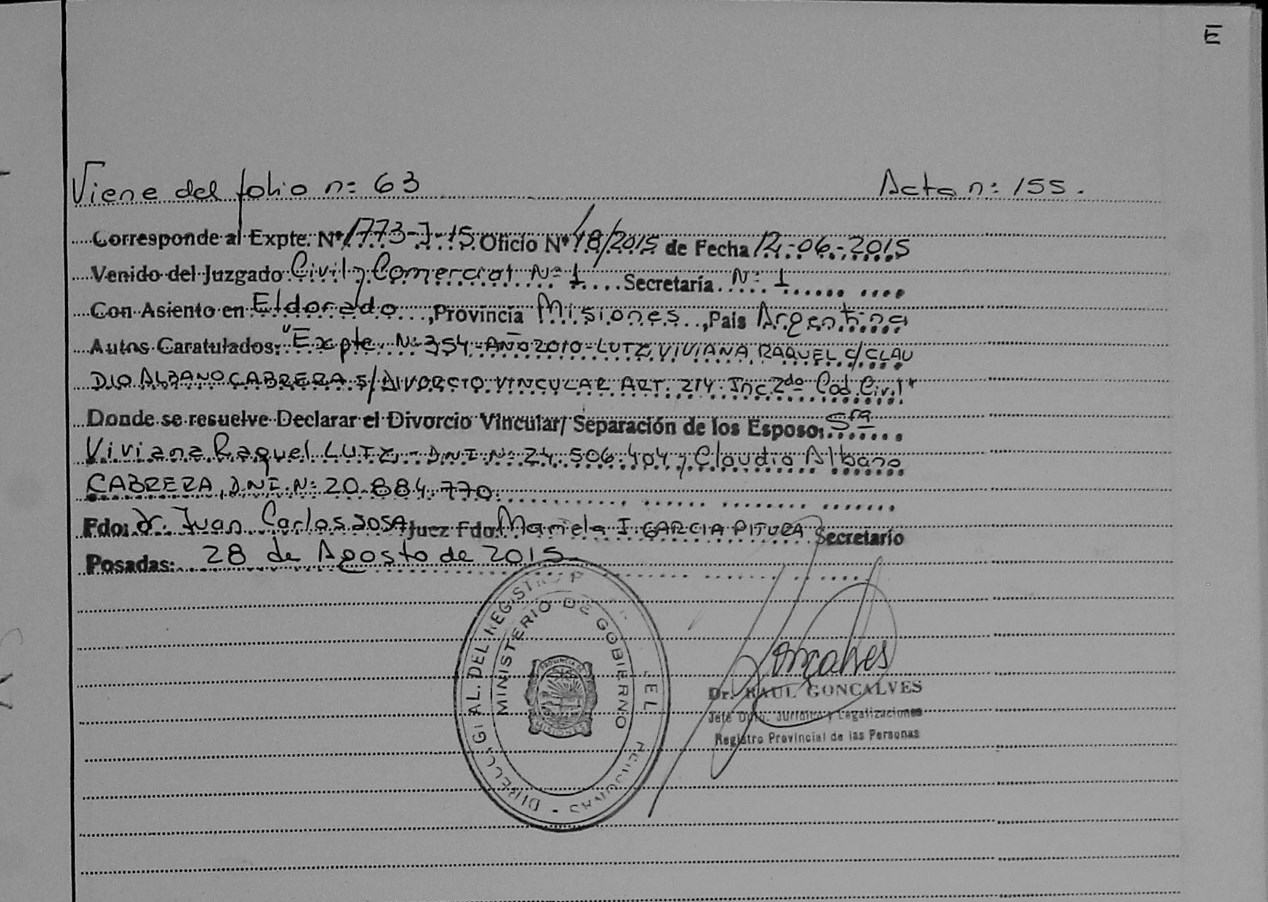 E
Viene del folio n: 63 Acta n: 155.
Corresponde al Expte. Nº 1773-J-15 Oficio Nº 48/2015 de Fecha 12-06-2015
Venido del Juzgado Civil y Comercial Nº 1 Secretaría Nº 1
Con Asiento en Eldorado, Provincia Misiones, País Argentina
Autos Caratulados: "Expte. Nº 354-AÑO 2010-LUTZ, VIVIANA RAQUEL C/ CLAU
DIO ALBANO CABRERA S/ DIVORCIO VINCULAR ART. 214 Inc 2do Cod. Civil"
Donde se resuelve Declarar el Divorcio Vincular/ Separación de los Esposo: Sra
Viviana Raquel LUTZ, - DNI Nº 24.506.404 y Claudio Albano
CABRERA, DNI. N: 20.884.770
Fdo: dr. Juan Carlos SOSA Juez Fdo: Mariela I GARCIA PITURA Secretario
Posadas: 28 de Agosto de 2015
MINISTERIO DE GOBIERNO
PROVINCIA DE
MISIONES
Goncalves
Dr. RAUL GONCALVES
Jefe Dpto. Jurídico y Legalizaciones
Registro Provincial de las Personas